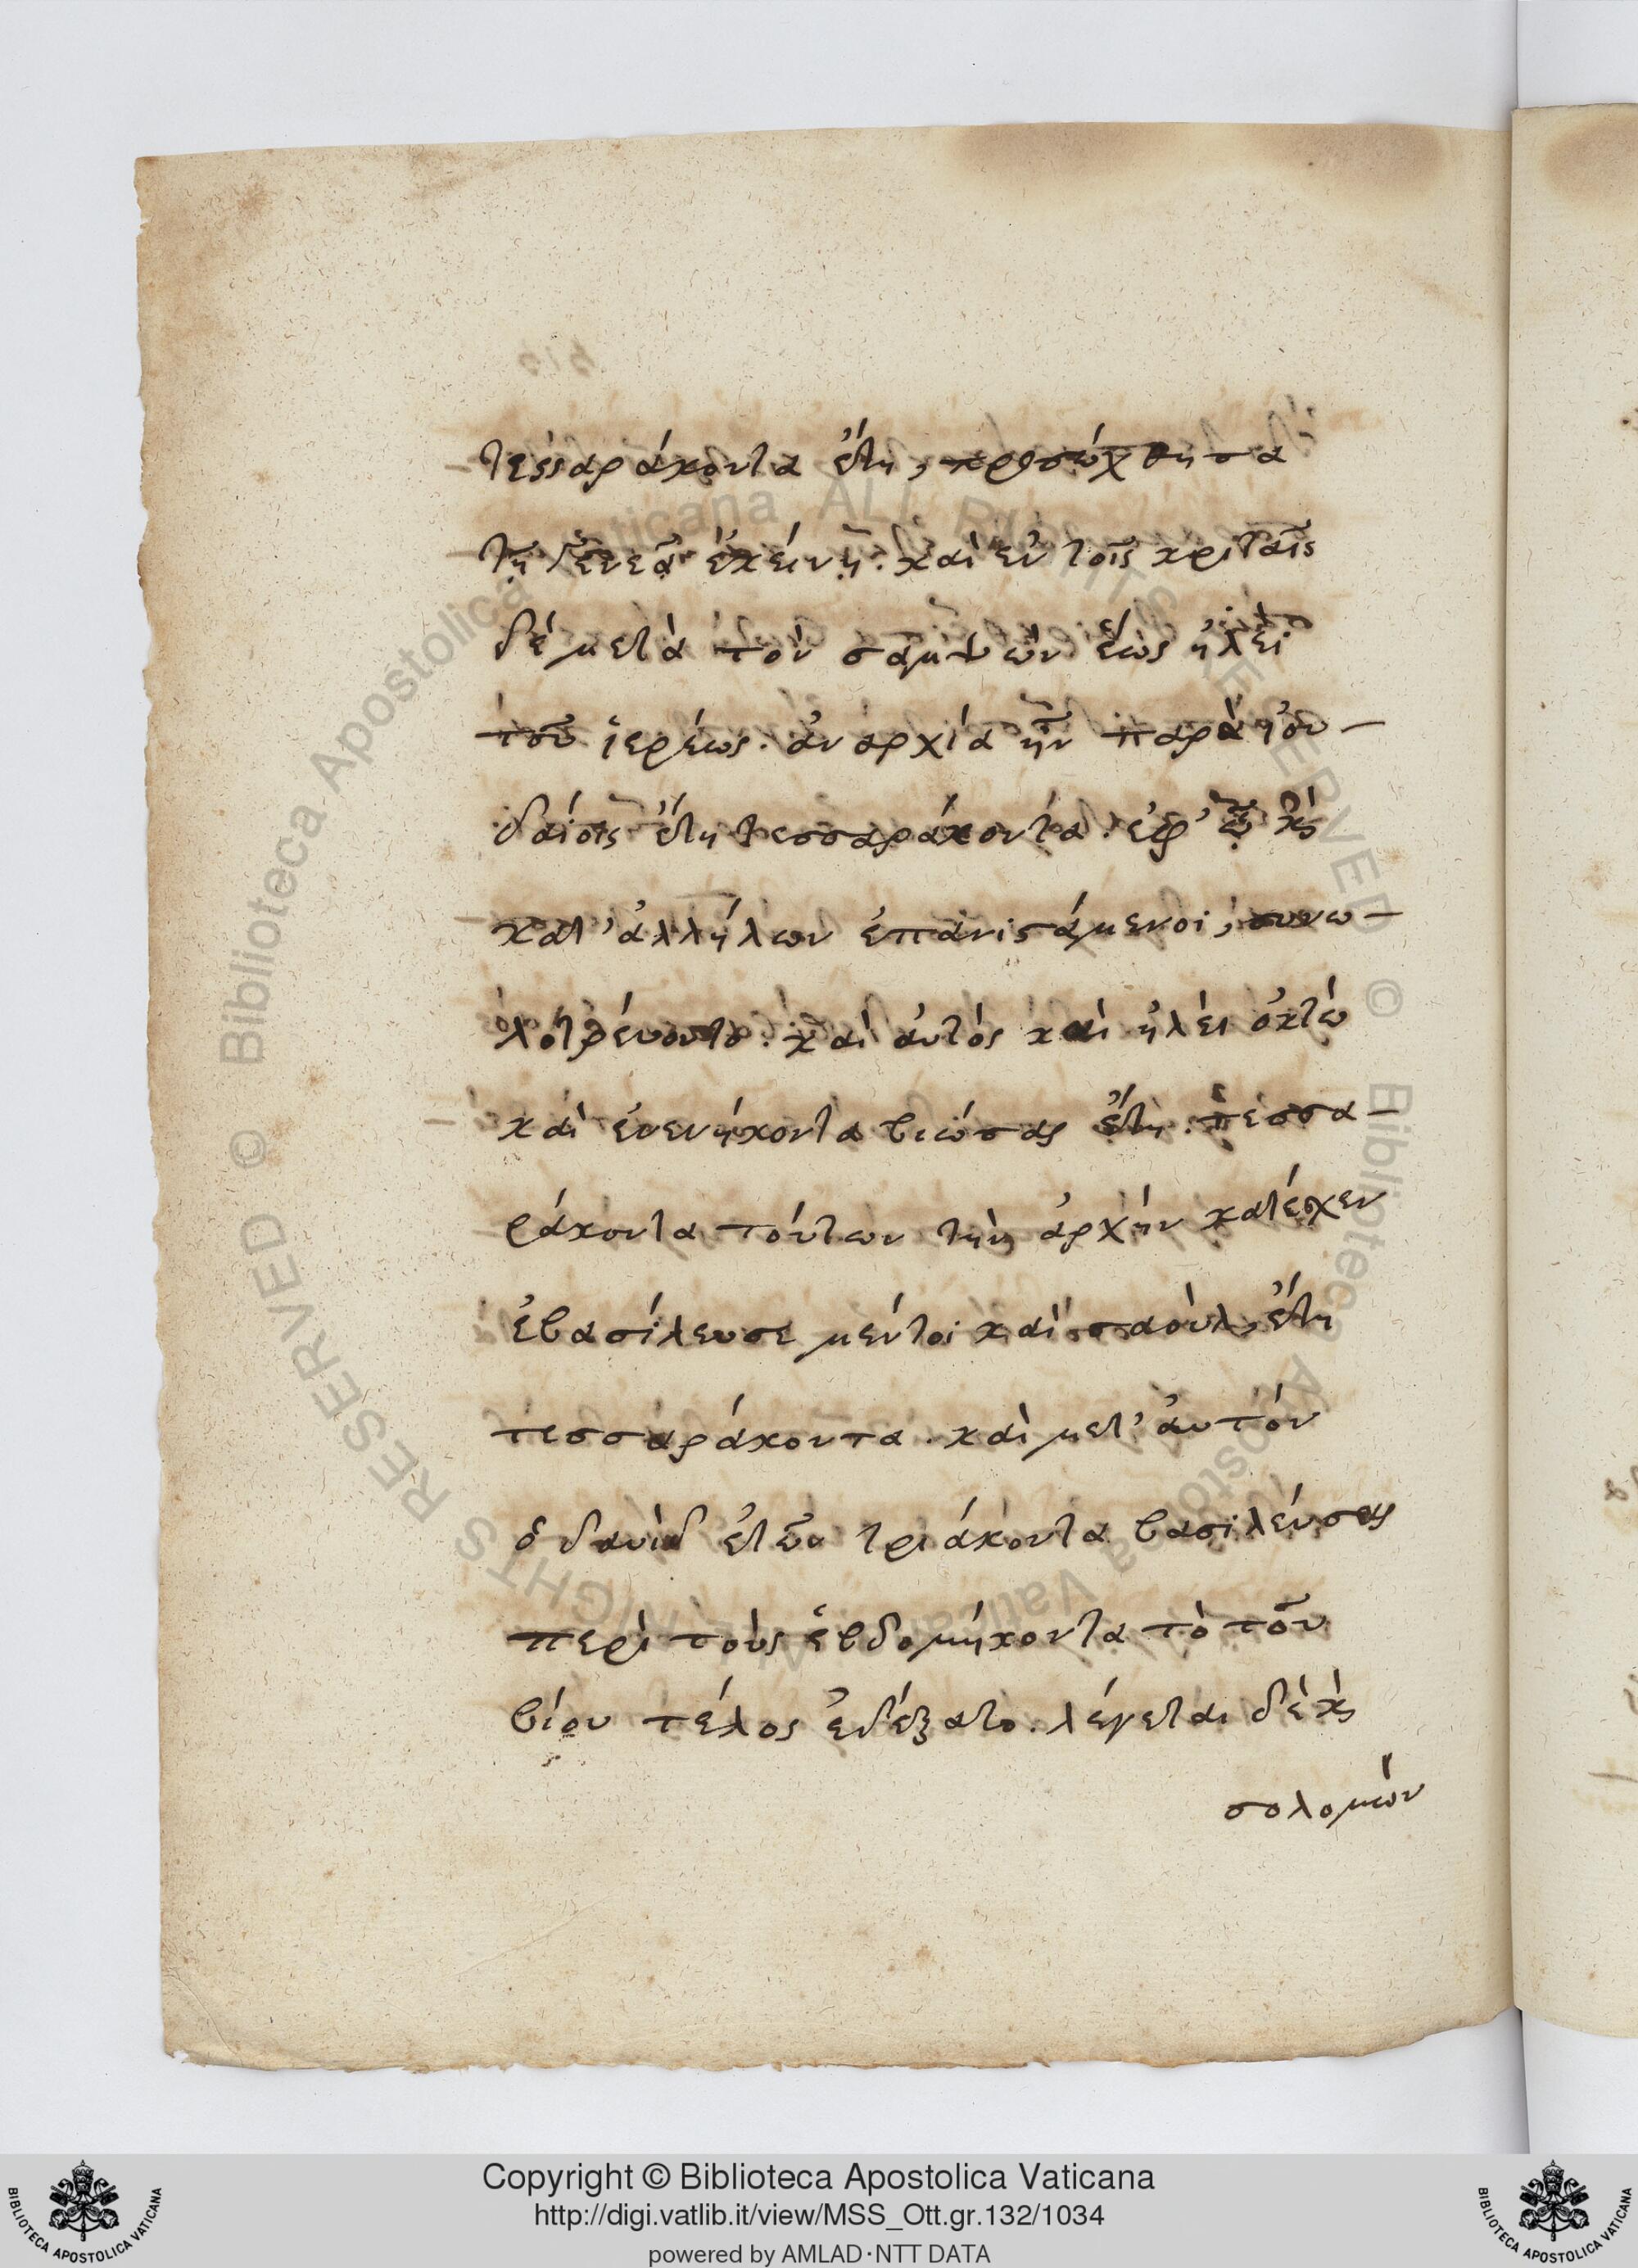 τεσσαράκοντα ἔτη, προσώχθησα
τῇ γενεᾷ ἐκείνῃ. καὶ ἐν τοῖς κριταῖς
δὲ μετὰ τὸν σαμψὼν ἕως ἠλεὶ
τοῦ ἱερέως. ἀναρχία ἦν παρὰ ἰου-
δαίοις ἔτη τεσσαράκοντα. ἐφ' ᾧ κς
κατ' ἀλλήλων ἐπανιστάμενοι, συνω-
λοθρέυοντο. καὶ ἀυτὸς καὶ ἠλεὶ ὀκτὼ
καὶ ἐνενήκοντα βιώσας ἔτη. τεσσα-
ράκοντα τούτων τὴν ἀρχήν κατέσχεν
ἐβασίλευσε μέντοι καὶ σαοὺλ, ἔτη
τεσσαράκοντα. καὶ μετ' ἀυτόν
ὁ δαυὶδ ἐτῶν τριάκοντα βασιλέυσας
περὶ τοὺς ἑβδομήκοντα τὸ τοῦ
βίου τέλος ἐδέξατο. λέγεται δὲ κς
σολομών
Copyright © Biblioteca Apostolica Vaticana
http://digi.vatlib.it/view/MSS_Ott.gr.132/1034
powered by AMLAD·NTT DATA
BIBLIOTECA APOSTOLICA VATICANA
BIBLIOTECA APOSTOLICA VATICANA